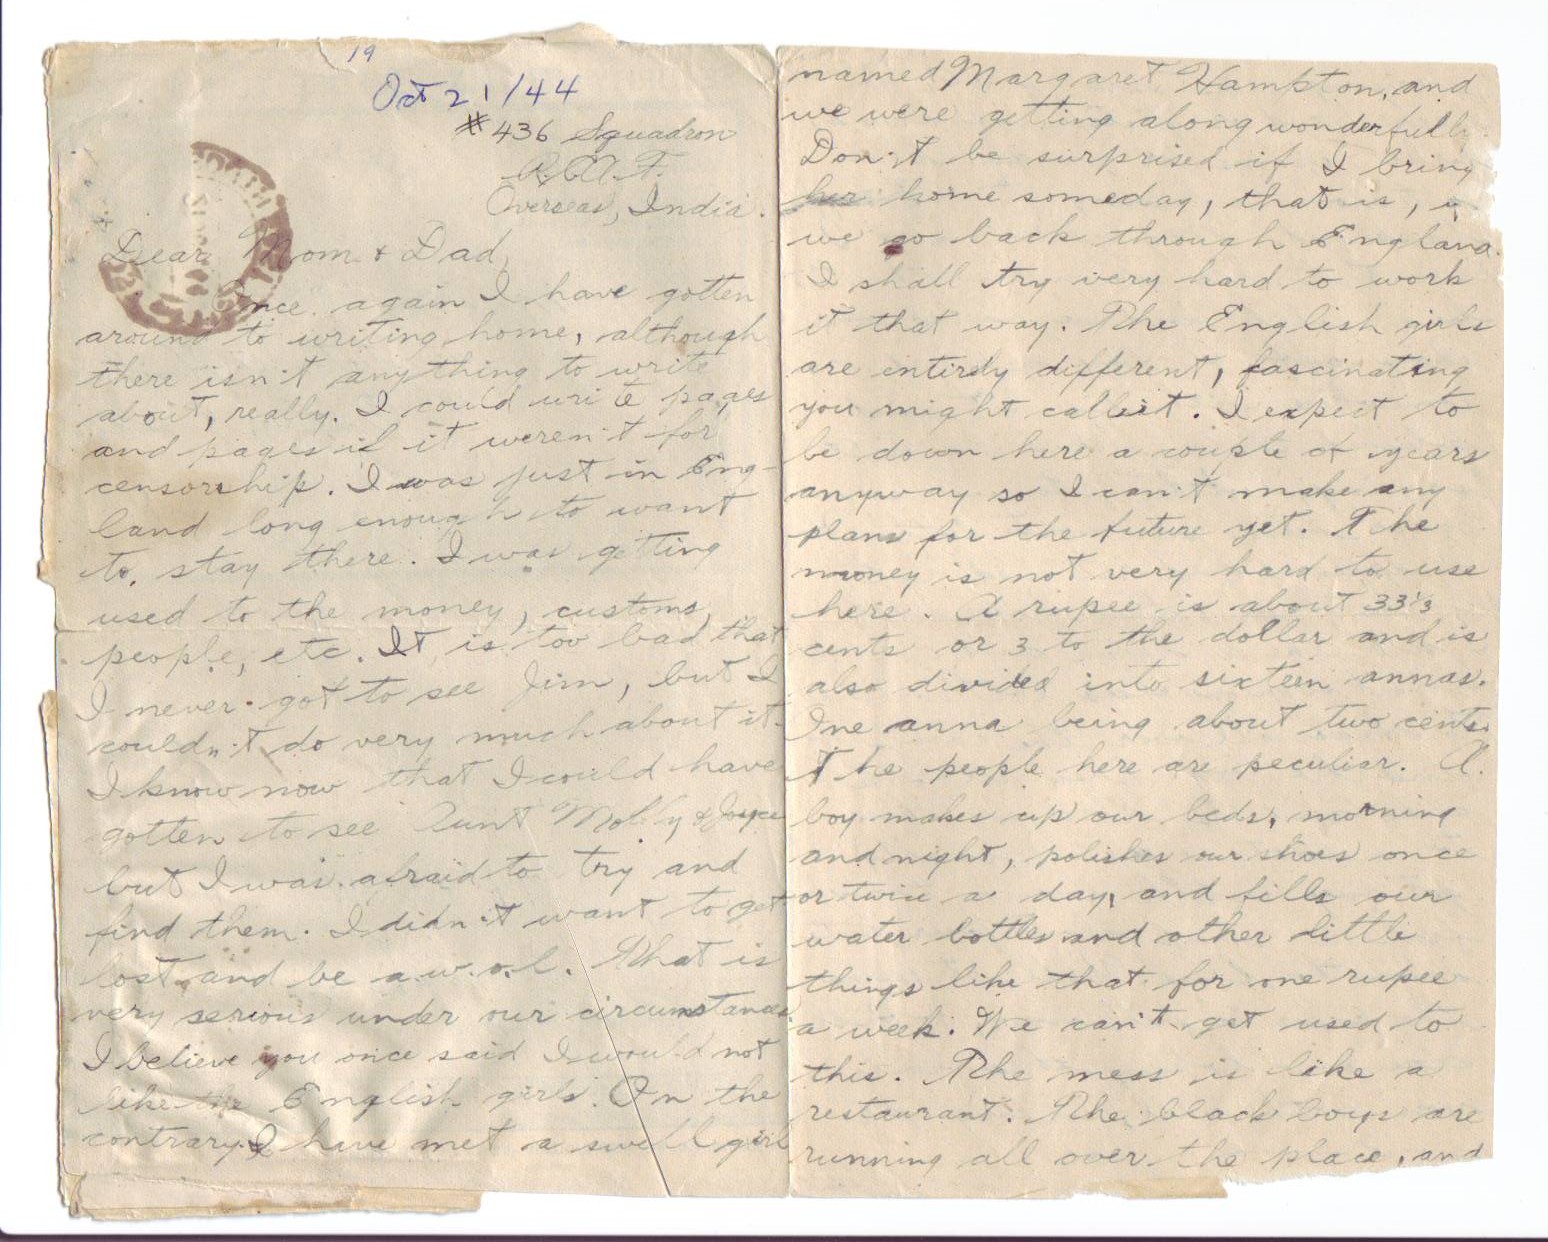 19
Oct 21/44
#436 Squadron
R.C.A.F.
Overseas, India.
Dear Mom & Dad,
Once again I have gotten
around to writing home, although
there isn't anything to write
about, really. I could write pages
and pages if it weren't for
censorship. I was just in Eng-
land long enough to want
to stay there. I was getting
used to the money, customs,
people, etc. It is too bad that
I never got to see Jim, but I
couldn't do very much about it.
I know now that I could have
gotten to see Aunt Molly & Joyce
but I was afraid to try and
find them. I didn't want to get
lost and be a.w.o.l. That is
very serious under our circumstances
I believe you once said I would not
like the English girls. On the
contrary I have met a swell girl
named Margaret Hampton, and
we were getting along wonderfully.
Don't be surprised if I bring
her home someday, that is, if
we go back through England.
I shall try very hard to work
it that way. The English girls
are entirely different, fascinating
you might call it. I expect to
be down here a couple of years
anyway so I can't make any
plans for the future yet. The
money is not very hard to use
here. A rupee is about 33⅓
cents or 3 to the dollar and is
also divided into sixteen annas.
One anna being about two cents.
The people here are peculiar. A
boy makes up our beds, morning
and night, polishes our shoes once
or twice a day, and fills our
water bottles and other little
things like that for one rupee
a week. We can't get used to
this. The mess is like a
restaurant. The black boys are
running all over the place, and